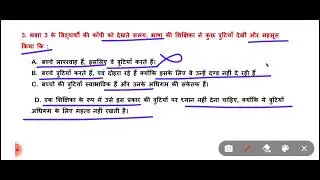 3. कक्षा 3 के विद्यार्थियों की कॉपी को देखते समय, भाषा की शिक्षिका ने कुछ त्रुटियाँ देखी और महसूस
किया कि :
A. बच्चे लापरवाह हैं, इसलिए वे त्रुटियाँ करते हैं।
B. बच्चे त्रुटियाँ करते हैं, एवं दोहरा रहे हैं क्योंकि इसके लिए वे उन्हें दण्ड नहीं दे रही हैं
C. बच्चों की त्रुटियाँ स्वाभाविक हैं और उनके अधिगम की संकेतक हैं।
D. एक शिक्षिका के रूप में उसे इस प्रकार की त्रुटियों पर ध्यान नहीं देना चाहिए, क्योंकि ये त्रुटियाँ
अधिगम के लिए महत्व नहीं रखती है।